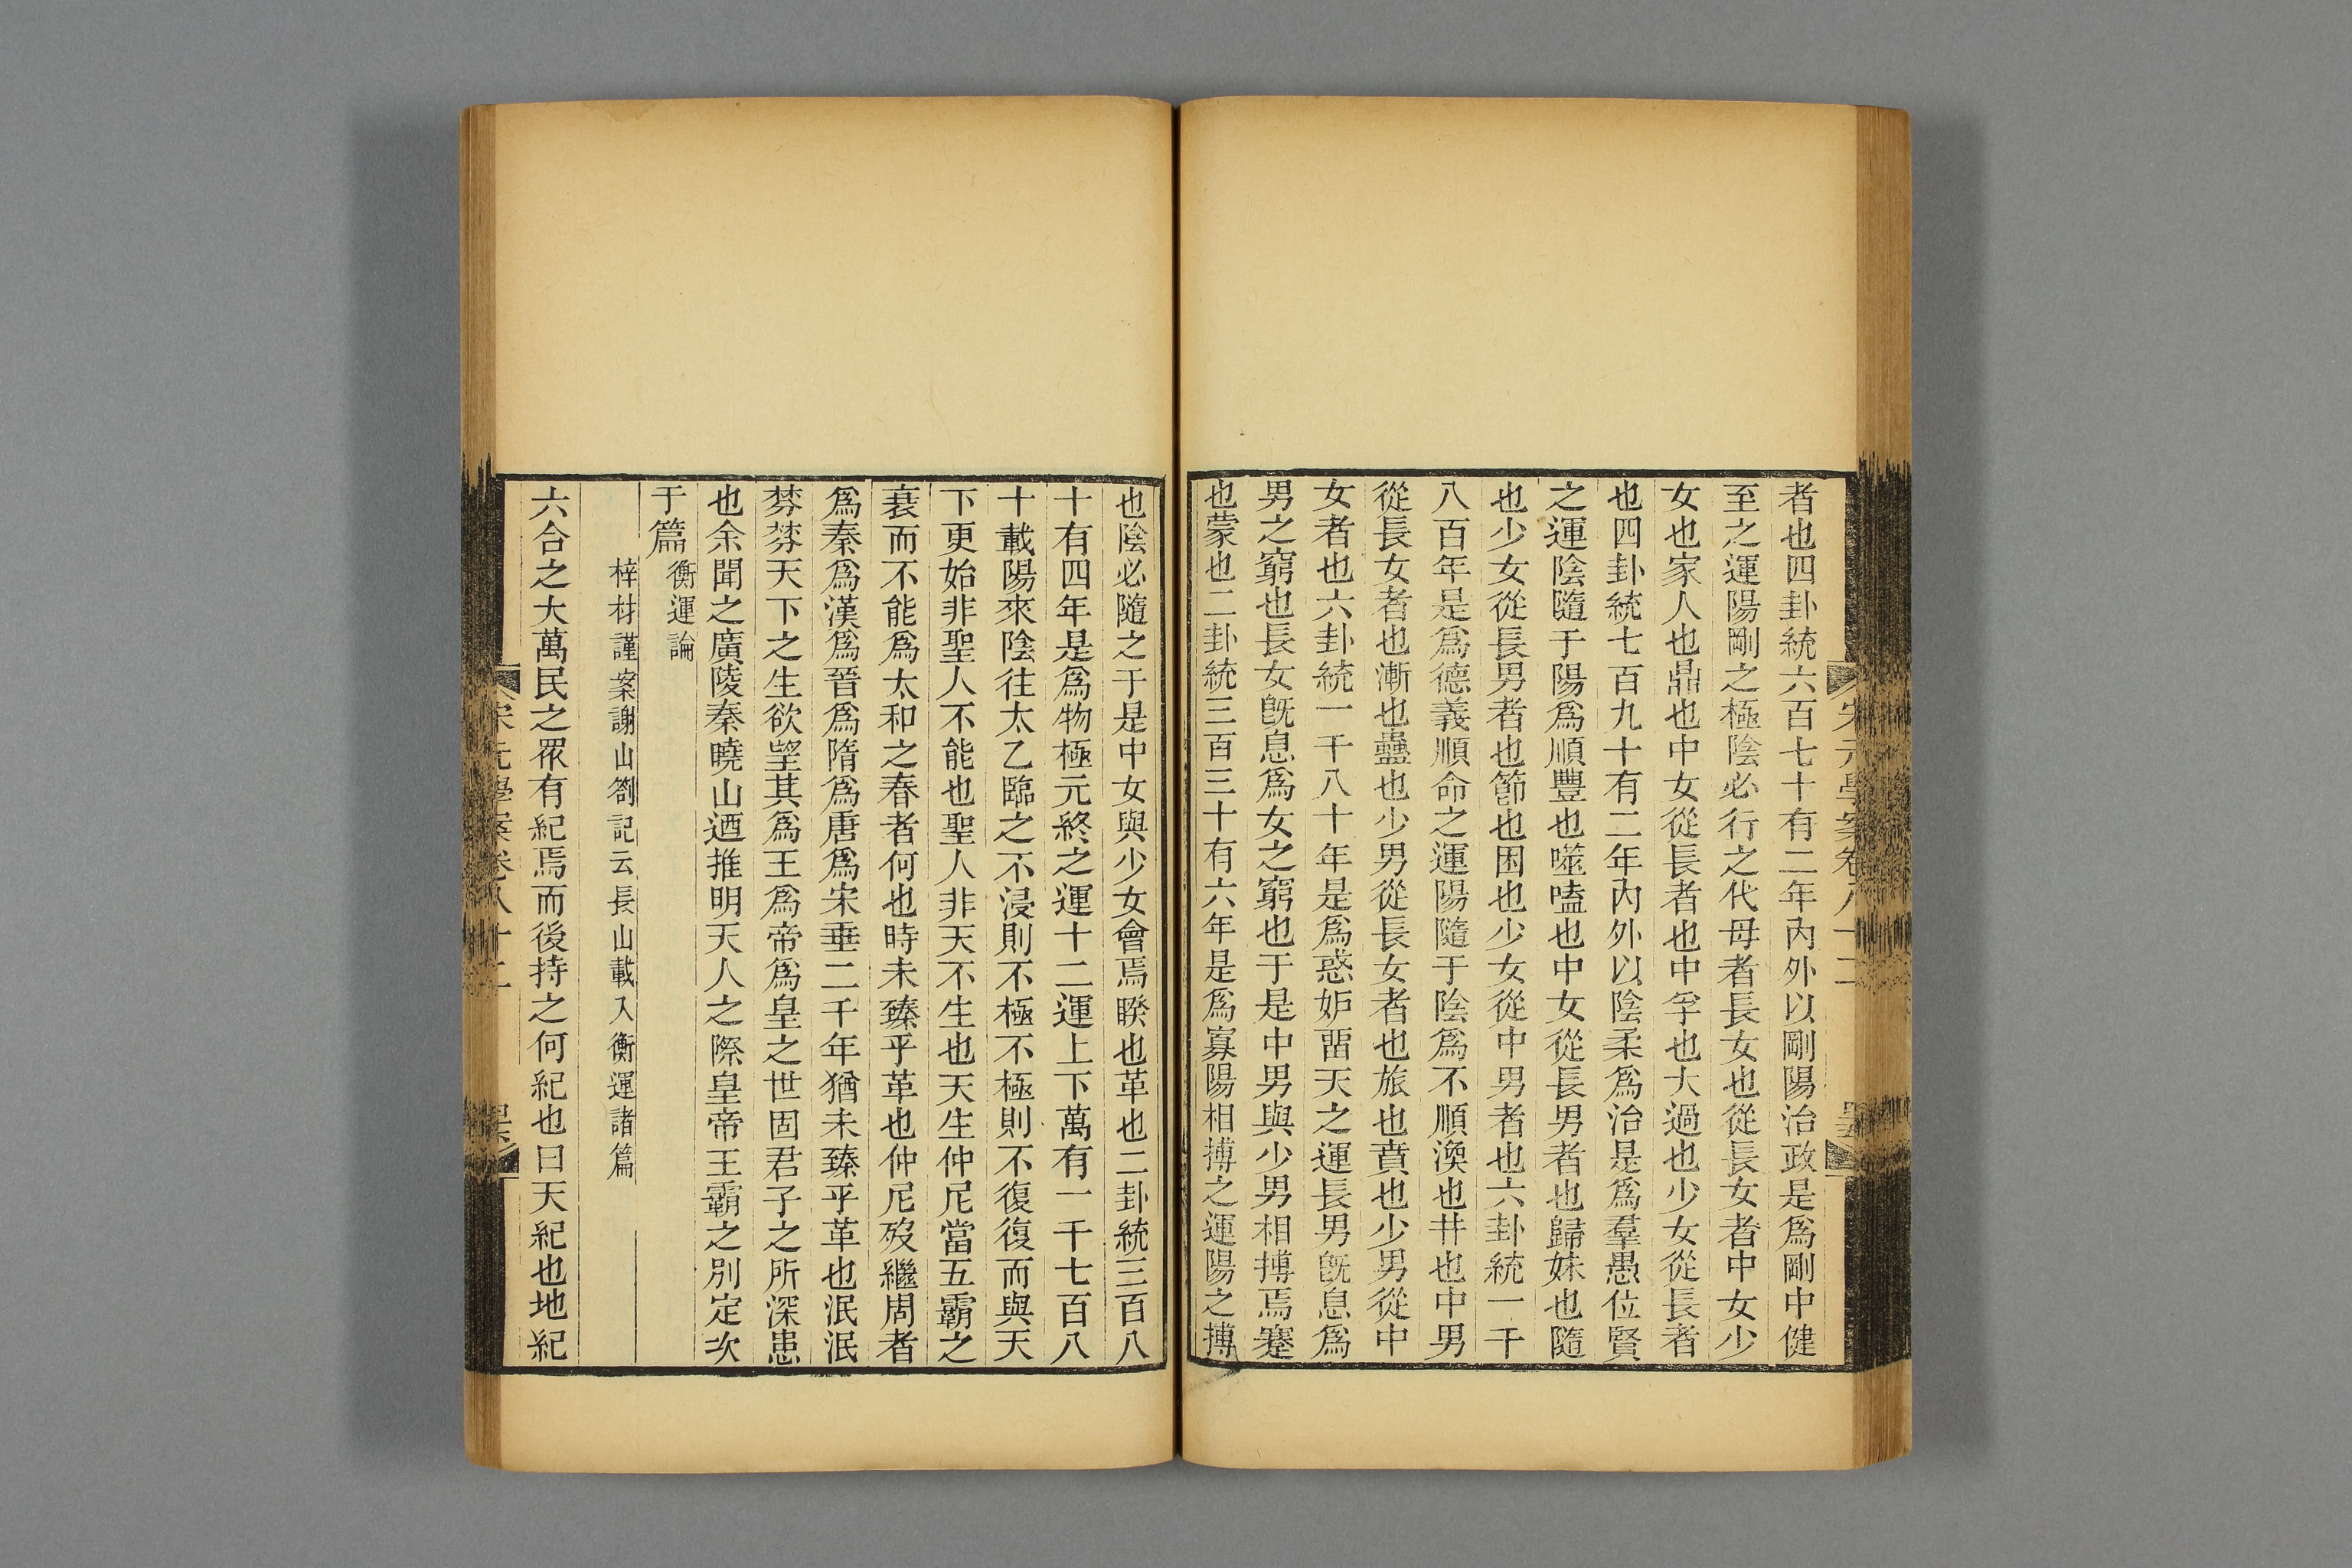 者也四卦統六百七十有二年內外以剛陽治政是爲剛中健
至之運陽剛之極陰必行之代母者長女也從長女者中女少
女也家人也鼎也中女從長者也中孚也大過也少女從長者
也四卦統七百九十有二年內外以陰柔爲治是爲羣愚位賢
之運陰隨于陽爲順豐也噬嗑也中女從長男者也歸妹也隨
也少女從長男者也節也困也少女從中男者也六卦統一千
八百年是爲德義順命之運陽隨于陰爲不順渙也井也中男
從長女者也漸也蠱也少男從長女者也旅也賁也少男從中
女者也六卦統一千八十年是爲惑妒畱天之運長男旣息爲
男之窮也長女旣息爲女之窮也于是中男與少男相摶焉蹇
也蒙也二卦統三百三十有六年是爲寡陽相摶之運陽之摶
也陰必隨之于是中女與少女會焉睽也革也二卦統三百八
十有四年是爲物極元終之運十二運上下萬有一千七百八
十載陽來陰往太乙臨之不浸則不極不極則不復復而與天
下更始非聖人不能也聖人非天不生也天生仲尼當五霸之
衰而不能爲太和之春者何也時未臻乎革也仲尼歿繼周者
爲秦爲漢爲晉爲隋爲唐爲宋垂二千年猶未臻乎革也泯泯
棼棼天下之生欲望其爲王爲帝爲皇之世固君子之所深患
也余聞之廣陵秦曉山迺推明天人之際皇帝王霸之別定次
于篇衡運論
梓材謹案謝山劄記云長山載入衡運諸篇
六合之大萬民之眾有紀焉而後持之何紀也曰天紀也地紀
宋元學案卷八十二